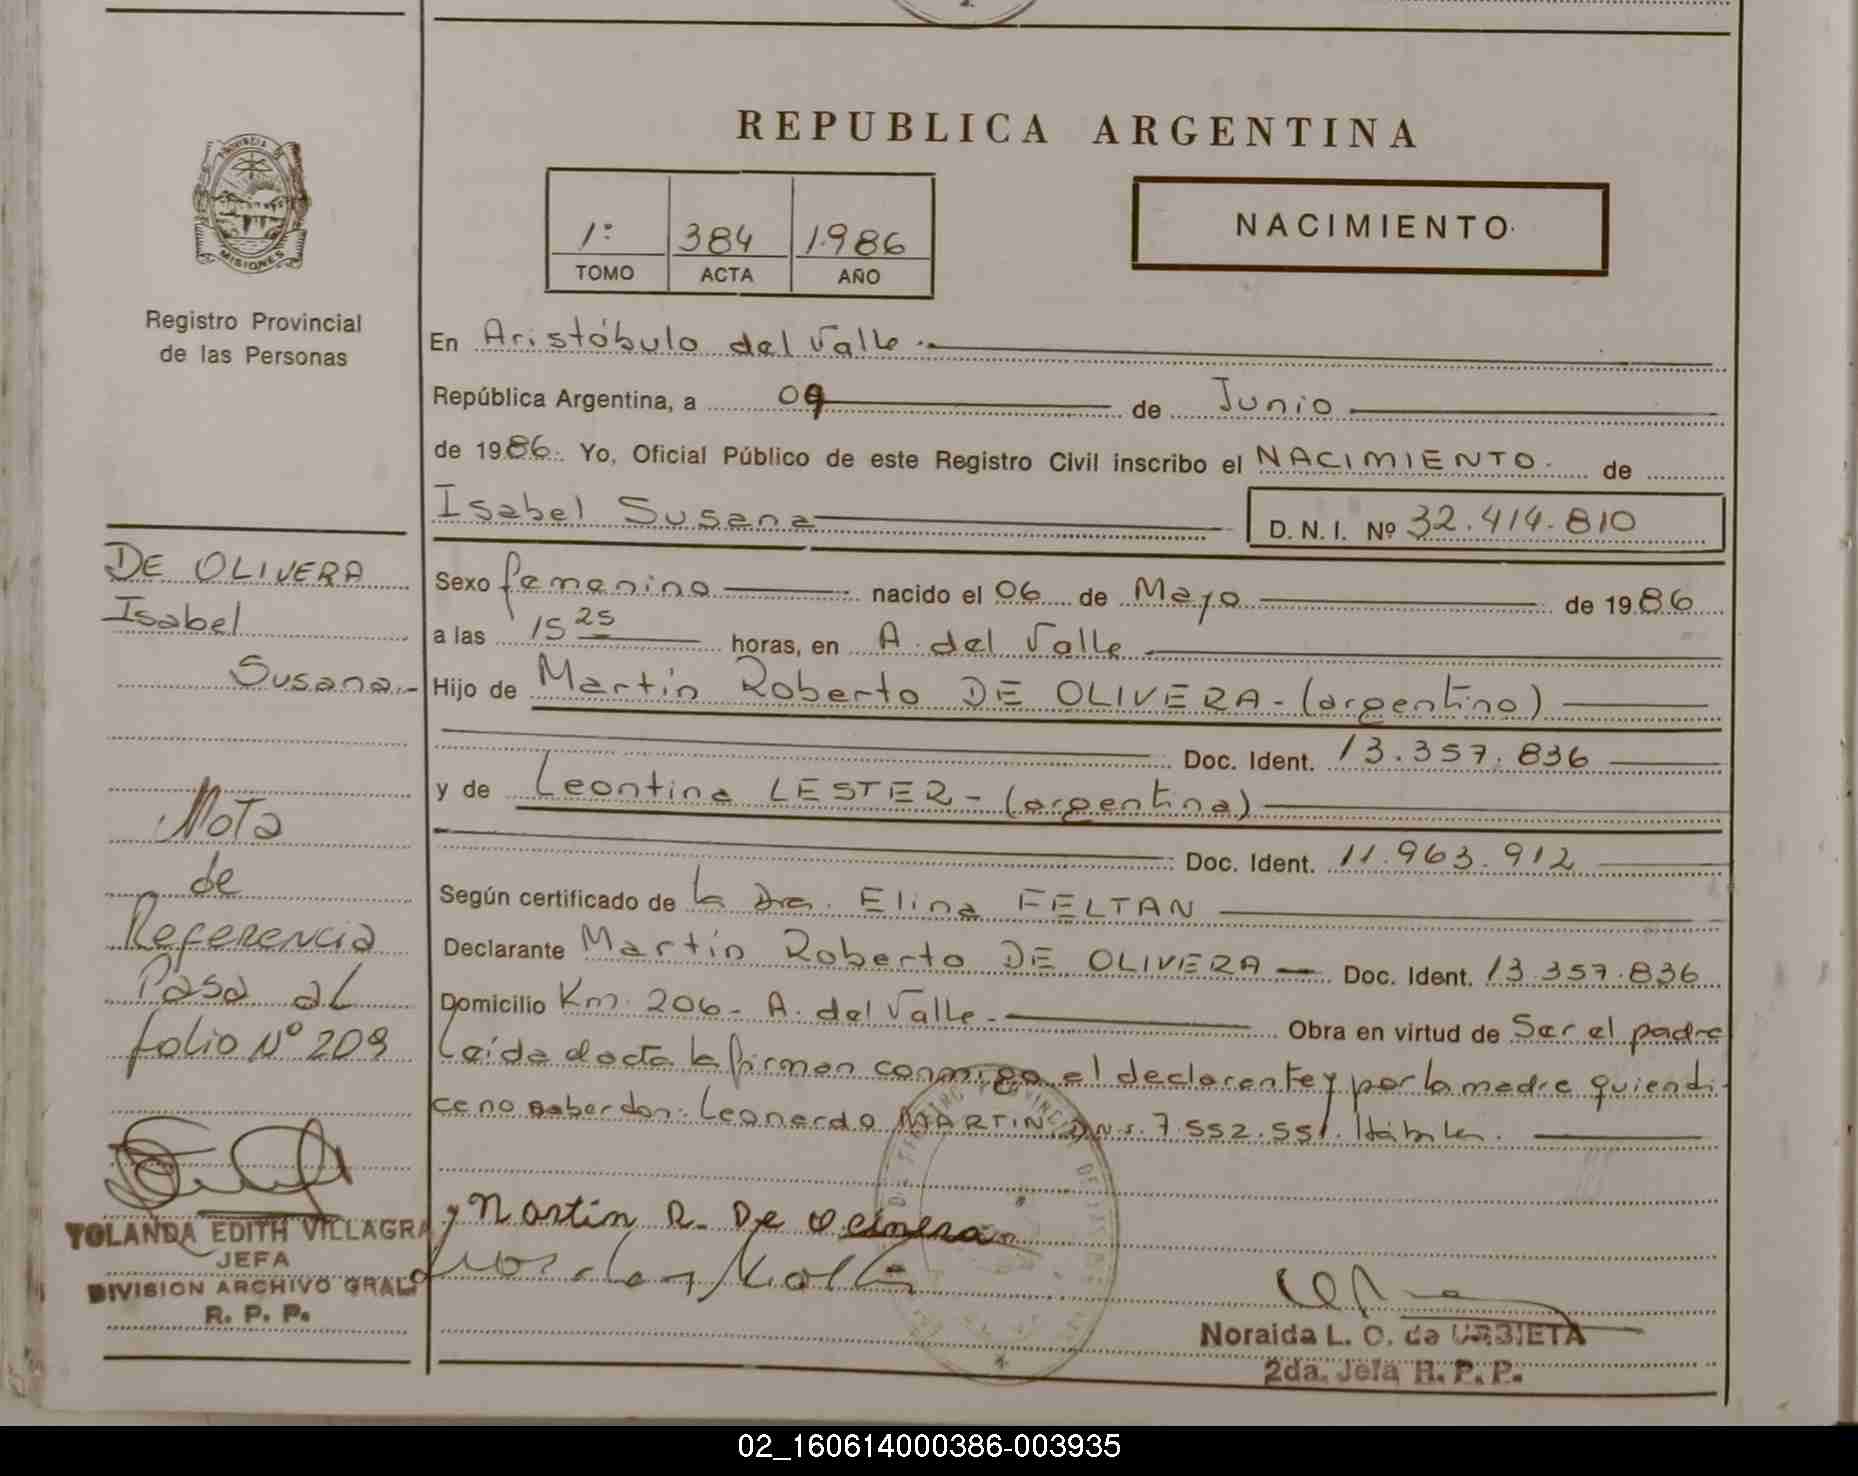 REPUBLICA ARGENTINA
PROVINCIA DE
MISIONES
Registro Provincial
de las Personas
1º 384 1986
TOMO ACTA AÑO
NACIMIENTO
En Aristóbulo del Valle.
República Argentina, a 09 de Junio
de 1986. Yo, Oficial Público de este Registro Civil inscribo el NACIMIENTO. de
Isabel Susana D. N. I. Nº 32.414.810
Sexo femenino nacido el 06 de Mayo de 1986
a las 15 25 horas, en A. del Valle
Hijo de Martín Roberto DE OLIVERA - (argentino)
Doc. Ident. 13.357.836
y de Leontina LESTER - (argentina)
Doc. Ident. 11.963.912
Según certificado de la Dra. Elina FELTAN
Declarante Martín Roberto DE OLIVERA Doc. Ident. 13.357.836
Domicilio Km. 206 - A. del Valle - Obra en virtud de Ser el padre
Leída el acta la firman conmigo el declarante y por la madre quien di-
ce no saber don: Leonardo MARTIN D.N.I. 7.552.551. Hábiles.
Martin R. De Olivera
Noraida L. O. de URBIETA
2da. Jefa R. P. P.
DE OLIVERA
Isabel
Susana.-
Nota
de
Referencia
Pasa al
folio Nº 209
YOLANDA EDITH VILLAGRA
JEFA
DIVISION ARCHIVO GRAL
R. P. P.
02_160614000386-003935